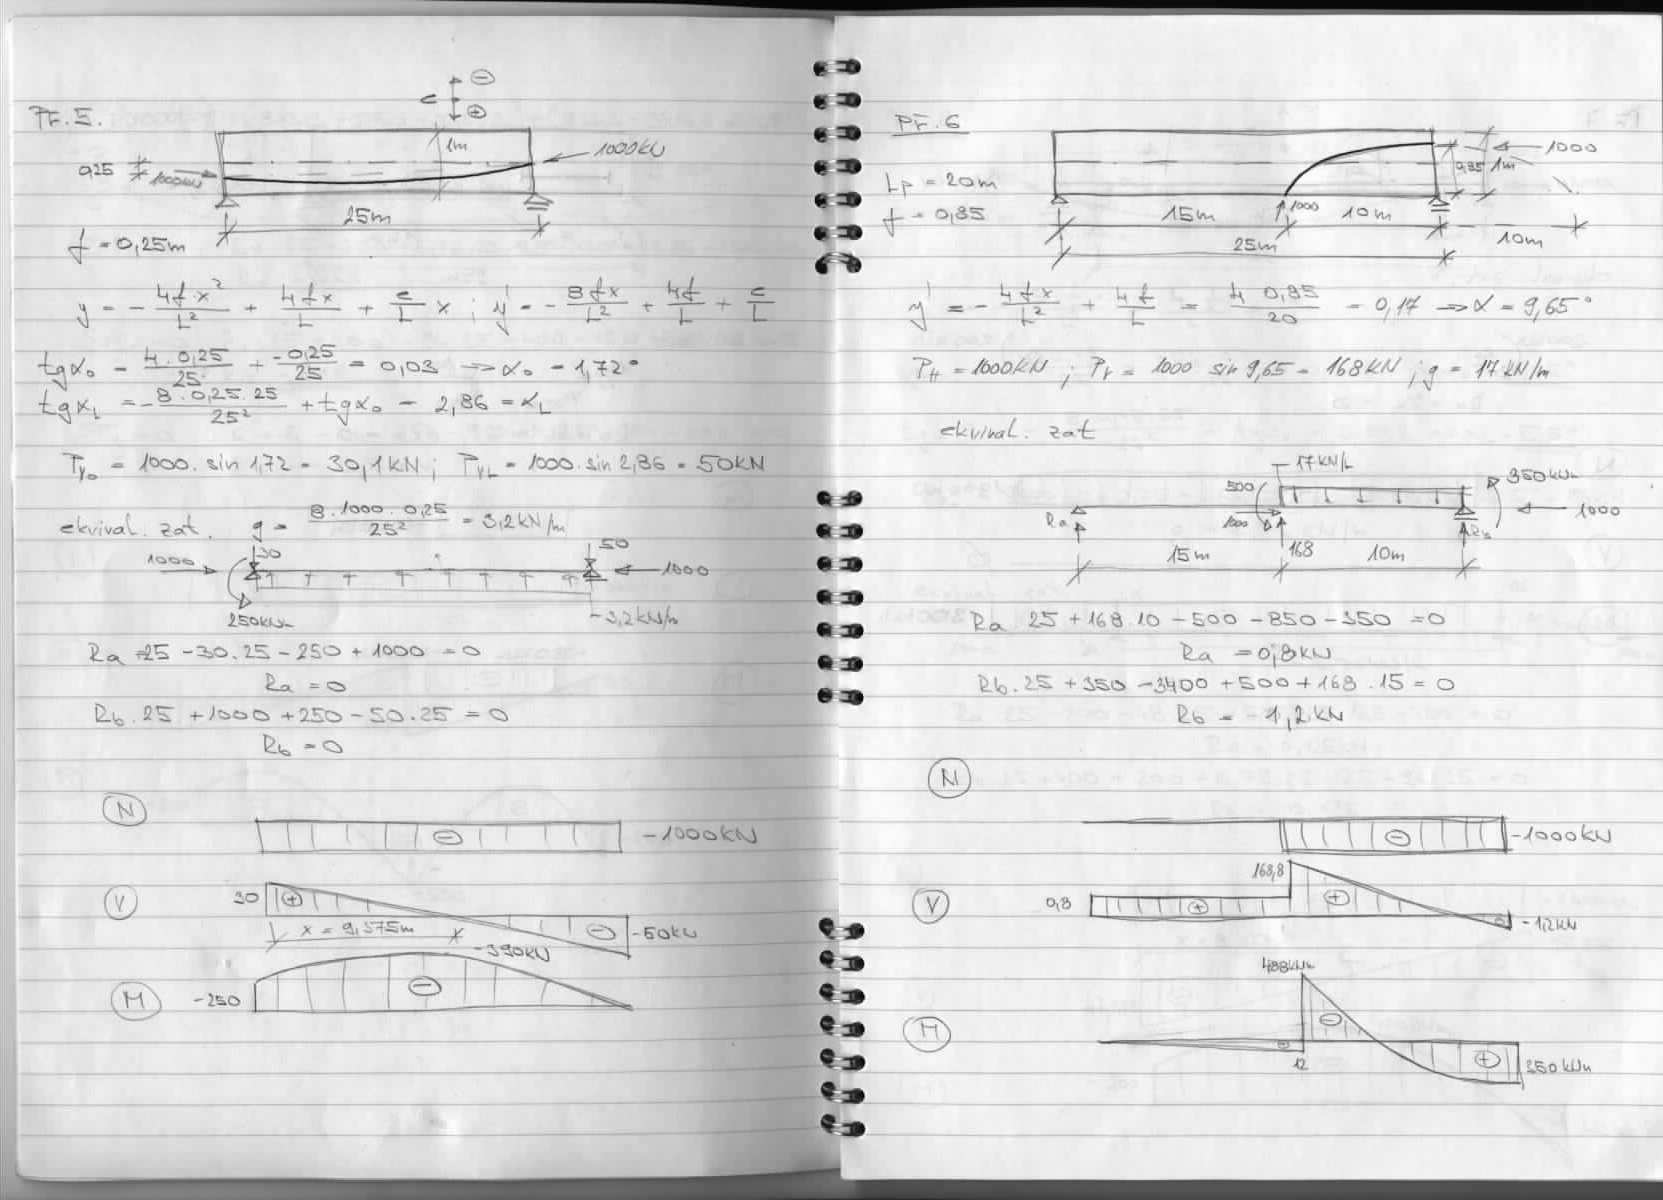 PŘ. 5.
⊖
e
⊕
1m
1000kN
0,25
1000kN
25m
f = 0,25m
y = - 4f·x²/L² + 4fx/L + e/L x ; y' = - 8fx/L² + 4f/L + e/L
tgα₀ = 4·0,25/25 + -0,25/25 = 0,03 → α₀ = 1,72°
tgα_L = - 8·0,25·25/25² + tgα₀ = 2,86 = α_L
P_V0 = 1000·sin 1,72 = 30,1kN ; P_VL = 1000·sin 2,86 = 50kN
ekvival. zat. g = 8·1000·0,25/25² = 3,2kN/m
30
50
1000
1000
250kNm
-3,2kN/m
Ra·25 - 30.25 - 250 + 1000 = 0
Ra = 0
Rb.25 + 1000 + 250 - 50.25 = 0
Rb = 0
N
⊖ -1000kN
V
30 ⊕
x = 9,375m
⊖ -50kN
-390kN
M
-250 ⊖
PŘ. 6
1000
0,85 1m
Lp = 20m
f = 0,85
1000
15m 10m
10m
25m
y' = - 4fx/L² + 4f/L = 4·0,85/20 = 0,17 → α = 9,65°
P_H = 1000kN ; P_V = 1000 sin 9,65 = 168kN ; g = 17kN/m
ekvival. zat
17kN/
350kNm
500
1000
1000
Ra
168
Rb
15m 10m
Ra 25 + 168.10 - 500 - 850 - 350 = 0
Ra = 0,8kN
Rb.25 + 350 - 3400 + 500 + 168.15 = 0
Rb = -1,2kN
N
⊖ -1000kN
V
168,8
0,8 ⊕ ⊕
-1,2kN
488kNm
M
⊖
⊖
12
⊕ 350kNm